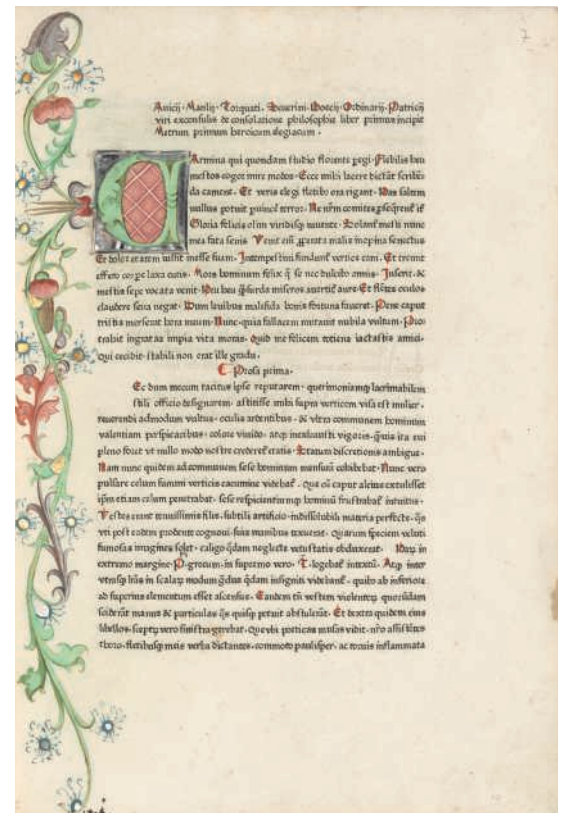 7
Anicij · Manlij · Torquati · Seuerini · Boecij · Ordinarij · Patricij
viri exconsulis de consolatione philosophie liber primus incipit
Metrum primum heroicum elegiacum ·
CArmina qui quondam studio florente pegi · Flebilis heu
mestos cogor inire modos · Ecce mihi lacere dictāt scribē
da camene · Et veris elegi fletibo ora rigant · Has saltem
nullus potuit terror · Ne comites
Gloria felicis olim viridisq iuuente · Solant mesti nunc
mea fata senis · Venit eni ꝓperata malis inopina senectus
Et dolor etatem iussit inesse suam · Intempestiui fundunt vertice cani · Et tremit
effeto corpe laxa cutis · Mors hominum felix q̄ se nec dulcibo annis · Inserit · &
mestis sepe vocata venit · Heu heu q̄ surda miseros auertit aure · Et flētes oculos
claudere seua negat · Dum leuibus malefida bonis fortuna faueret · Pene caput
triste merserat hora meum · Nunc quia fallacem mutauit nubila vultum · Pro
trahit ingratas impia vita moras · Quid me felicem totiens iactastis amici ·
qui cecidit · stabili non erat ille gradu ·
Prosa prima ·
Ec dum mecum tacitus ipse reputarem · querimoniamq lacrimabilem
stili officio designarem · astitisse mihi supra verticem visa est mulier ·
reuerendi admodum vultus · oculis ardentibus · & vltra communem hominum
valentiam perspicacibus · colore viuido · atq inexhausti vigoris · q̄uis ita eui
plena foret vt nullo modo nostre crederet etatis · Statura discretionis ambigue ·
Nam nunc quidem ad communem sese hominum mensurā cohibebat · Nunc vero
pulsare celum summi verticis cacumine videbat · Que cū caput alcius extulisset
ipm etiam celum penetrabat · sese respicientiumq hominū frustrabat intuitus ·
Vestes erant tenuissimis filis · subtili artificio · indissolubili materia perfecte · q̄s
vti post eadem prodente cognoui · suis manibus texuerat · quarum speciem veluti
fumosas imagines solet · caligo q̄dam neglecte vetustatis obduxerat · Harū in
extremo margine · P · grecum · in supremo vero · T · legebat intextū · Atq inter
vtrasq lrās in scalarū modum q̄dus q̄dam insigniti videbant · quibo ab inferiore
ad superius elementum esset ascensus · Eandem tn̄ vestem violentorū quorūdam
sciderāt manus & particulas q̄s quisq potuit abstulerāt · Et dextra quidem eius
libellos · sceptrū vero sinistra gerebat · Que vbi poeticas musas vidit · nr̄o assistētes
thoro · fletibusq meis verba dictantes · commota paulisper · ac toruis inflammata